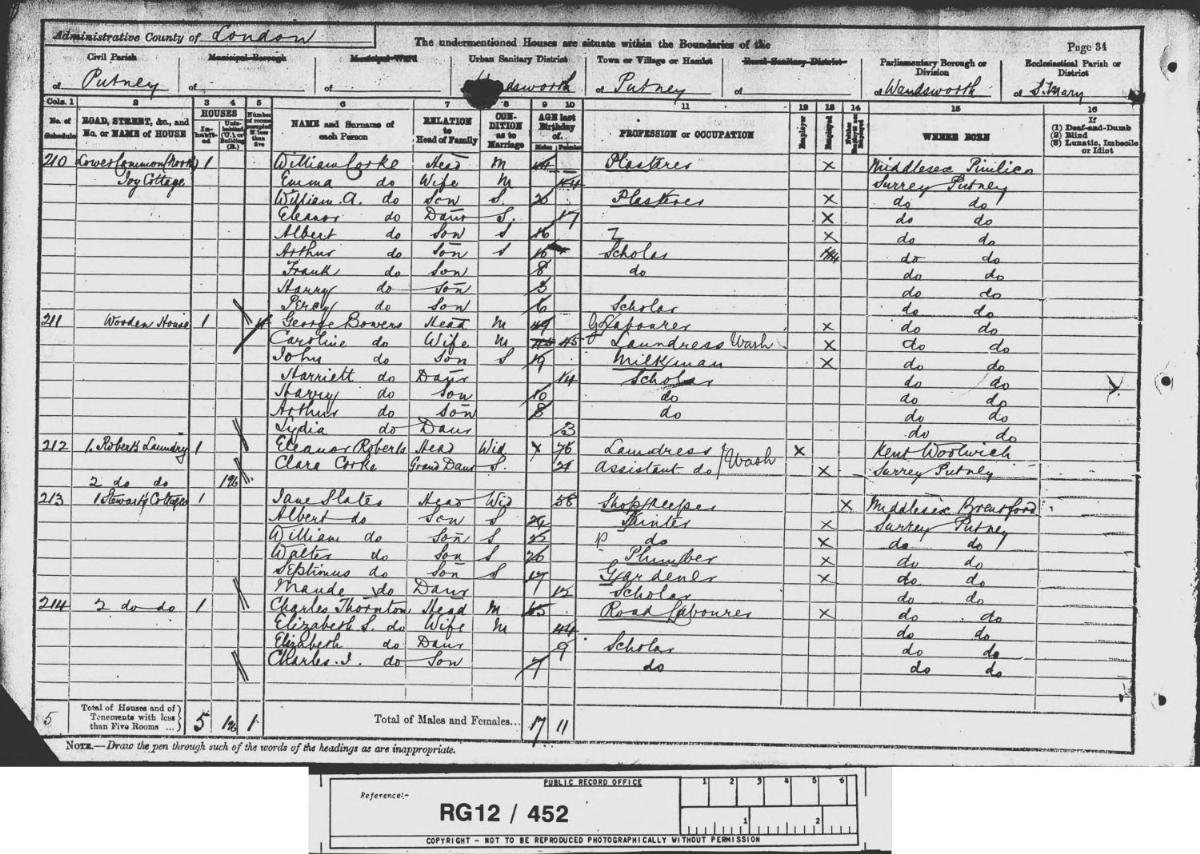 Administrative County of London
The undermentioned Houses are situate within the Boundaries of the
Page 34
Civil Parish of Putney
Municipal Borough of
Municipal Ward of
Urban Sanitary District of
Town or Village or Hamlet of Putney
Rural Sanitary District of
Parliamentary Borough or Division of Wandsworth
Ecclesiastical Parish or District of S. Mary
Cols. 1 2 3 4 5 6 7 8 9 10 11 12 13 14 15 16
No. of Schedule ROAD, STREET, &c., and No. or NAME of HOUSE HOUSES Inhabited Uninhabited (U.), or Building (B.) Number of rooms occupied if less than five NAME and Surname of each Person RELATION to Head of Family CONDITION as to Marriage AGE last Birthday of Males Females PROFESSION or OCCUPATION Employer Employed Neither Employer nor Employed WHERE BORN If (1) Deaf-and-Dumb (2) Blind (3) Lunatic, Imbecile or Idiot
210 Lower Common North 1 William Corke Head M Plasterer X Middlesex Pimlico
Ivy Cottage Emma do Wife M 44 Surrey Putney
William. A. do Son S Plasterer X do do
Eleanor do Daur S. 17 X do do
Albert do Son S 16 X do do
Arthur do Son S Scholar do do
Frank do Son 8 do do do
Harry do Son 3 do do
Percy do Son 6 Scholar do do
211 Wooden House 1 4 George Bowers Head M 49 Labourer X do do
Caroline do Wife M 45 Laundress Wash X do do
John do Son S 19 Milkman X do do
Harriett do Daur 14 Scholar do do
Harry do Son 10 do do do
Arthur do Son 8 do do do
Lydia do Daur 3 do do
212 1. Roberts Laundry 1 Eleanor Roberts Head Wid X 76 Laundress Wash X Kent Woolwich
Clara Corke Grand Daur S. 21 Assistant do X Surrey Putney
2 do do
213 1 Stewarts Cottages 1 Jane Slater Head Wid 58 Shopkeeper X Middlesex Brentford
Albert do Son S Painter X Surrey Putney
William do Son S 25 P do X do do
Walter do Son S 20 Plumber X do do
Septimus do Son S 17 Gardener X do do
Maude do Daur 12 Scholar do do
214 2 do do 1 Charles Thornton Head M Road Labourer X do do
Elizabeth S. do Wife M 44 do do
Elizabeth do Daur 9 Scholar do do
Charles. J. do Son 7 do do do
5 Total of Houses and of Tenements with less than Five Rooms ... 5 1 Total of Males and Females... 17 11
NOTE.—Draw the pen through such of the words of the headings as are inappropriate.
PUBLIC RECORD OFFICE
1 2 3 4 5 6
Reference:-
RG12 / 452
1 2
COPYRIGHT - NOT TO BE REPRODUCED PHOTOGRAPHICALLY WITHOUT PERMISSION